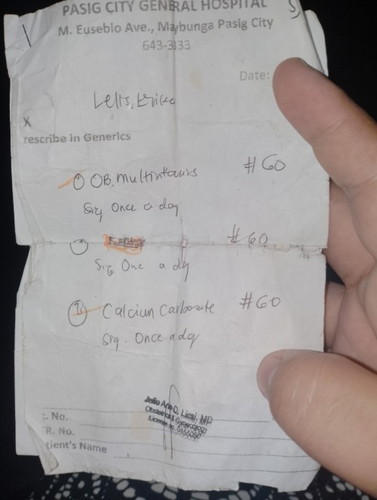 PASIG CITY GENERAL HOSPITAL
M. Eusebio Ave., Maybunga Pasig City
643-3133
Date:
Lelis, Ericka
x
rescribe in Generics
OB. multivitamins #60
Sig Once a day
#60
Sig. One a day
Calcium Carbonate #60
Sig. Once a day
. No.
R. No.
tient's Name